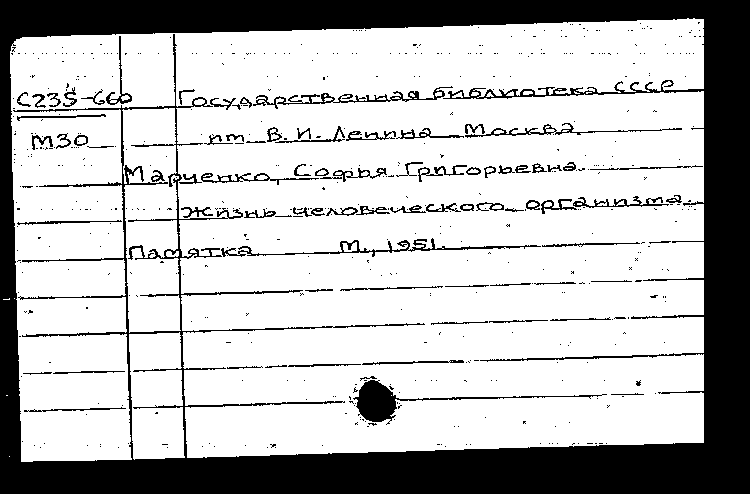 С235-660 Государственная библиотека СССР
М30 им. В.И. Ленина Москва
Марченко, Софья Григорьевна.
Жизнь человеческого организма.
Памятка М., 1951.